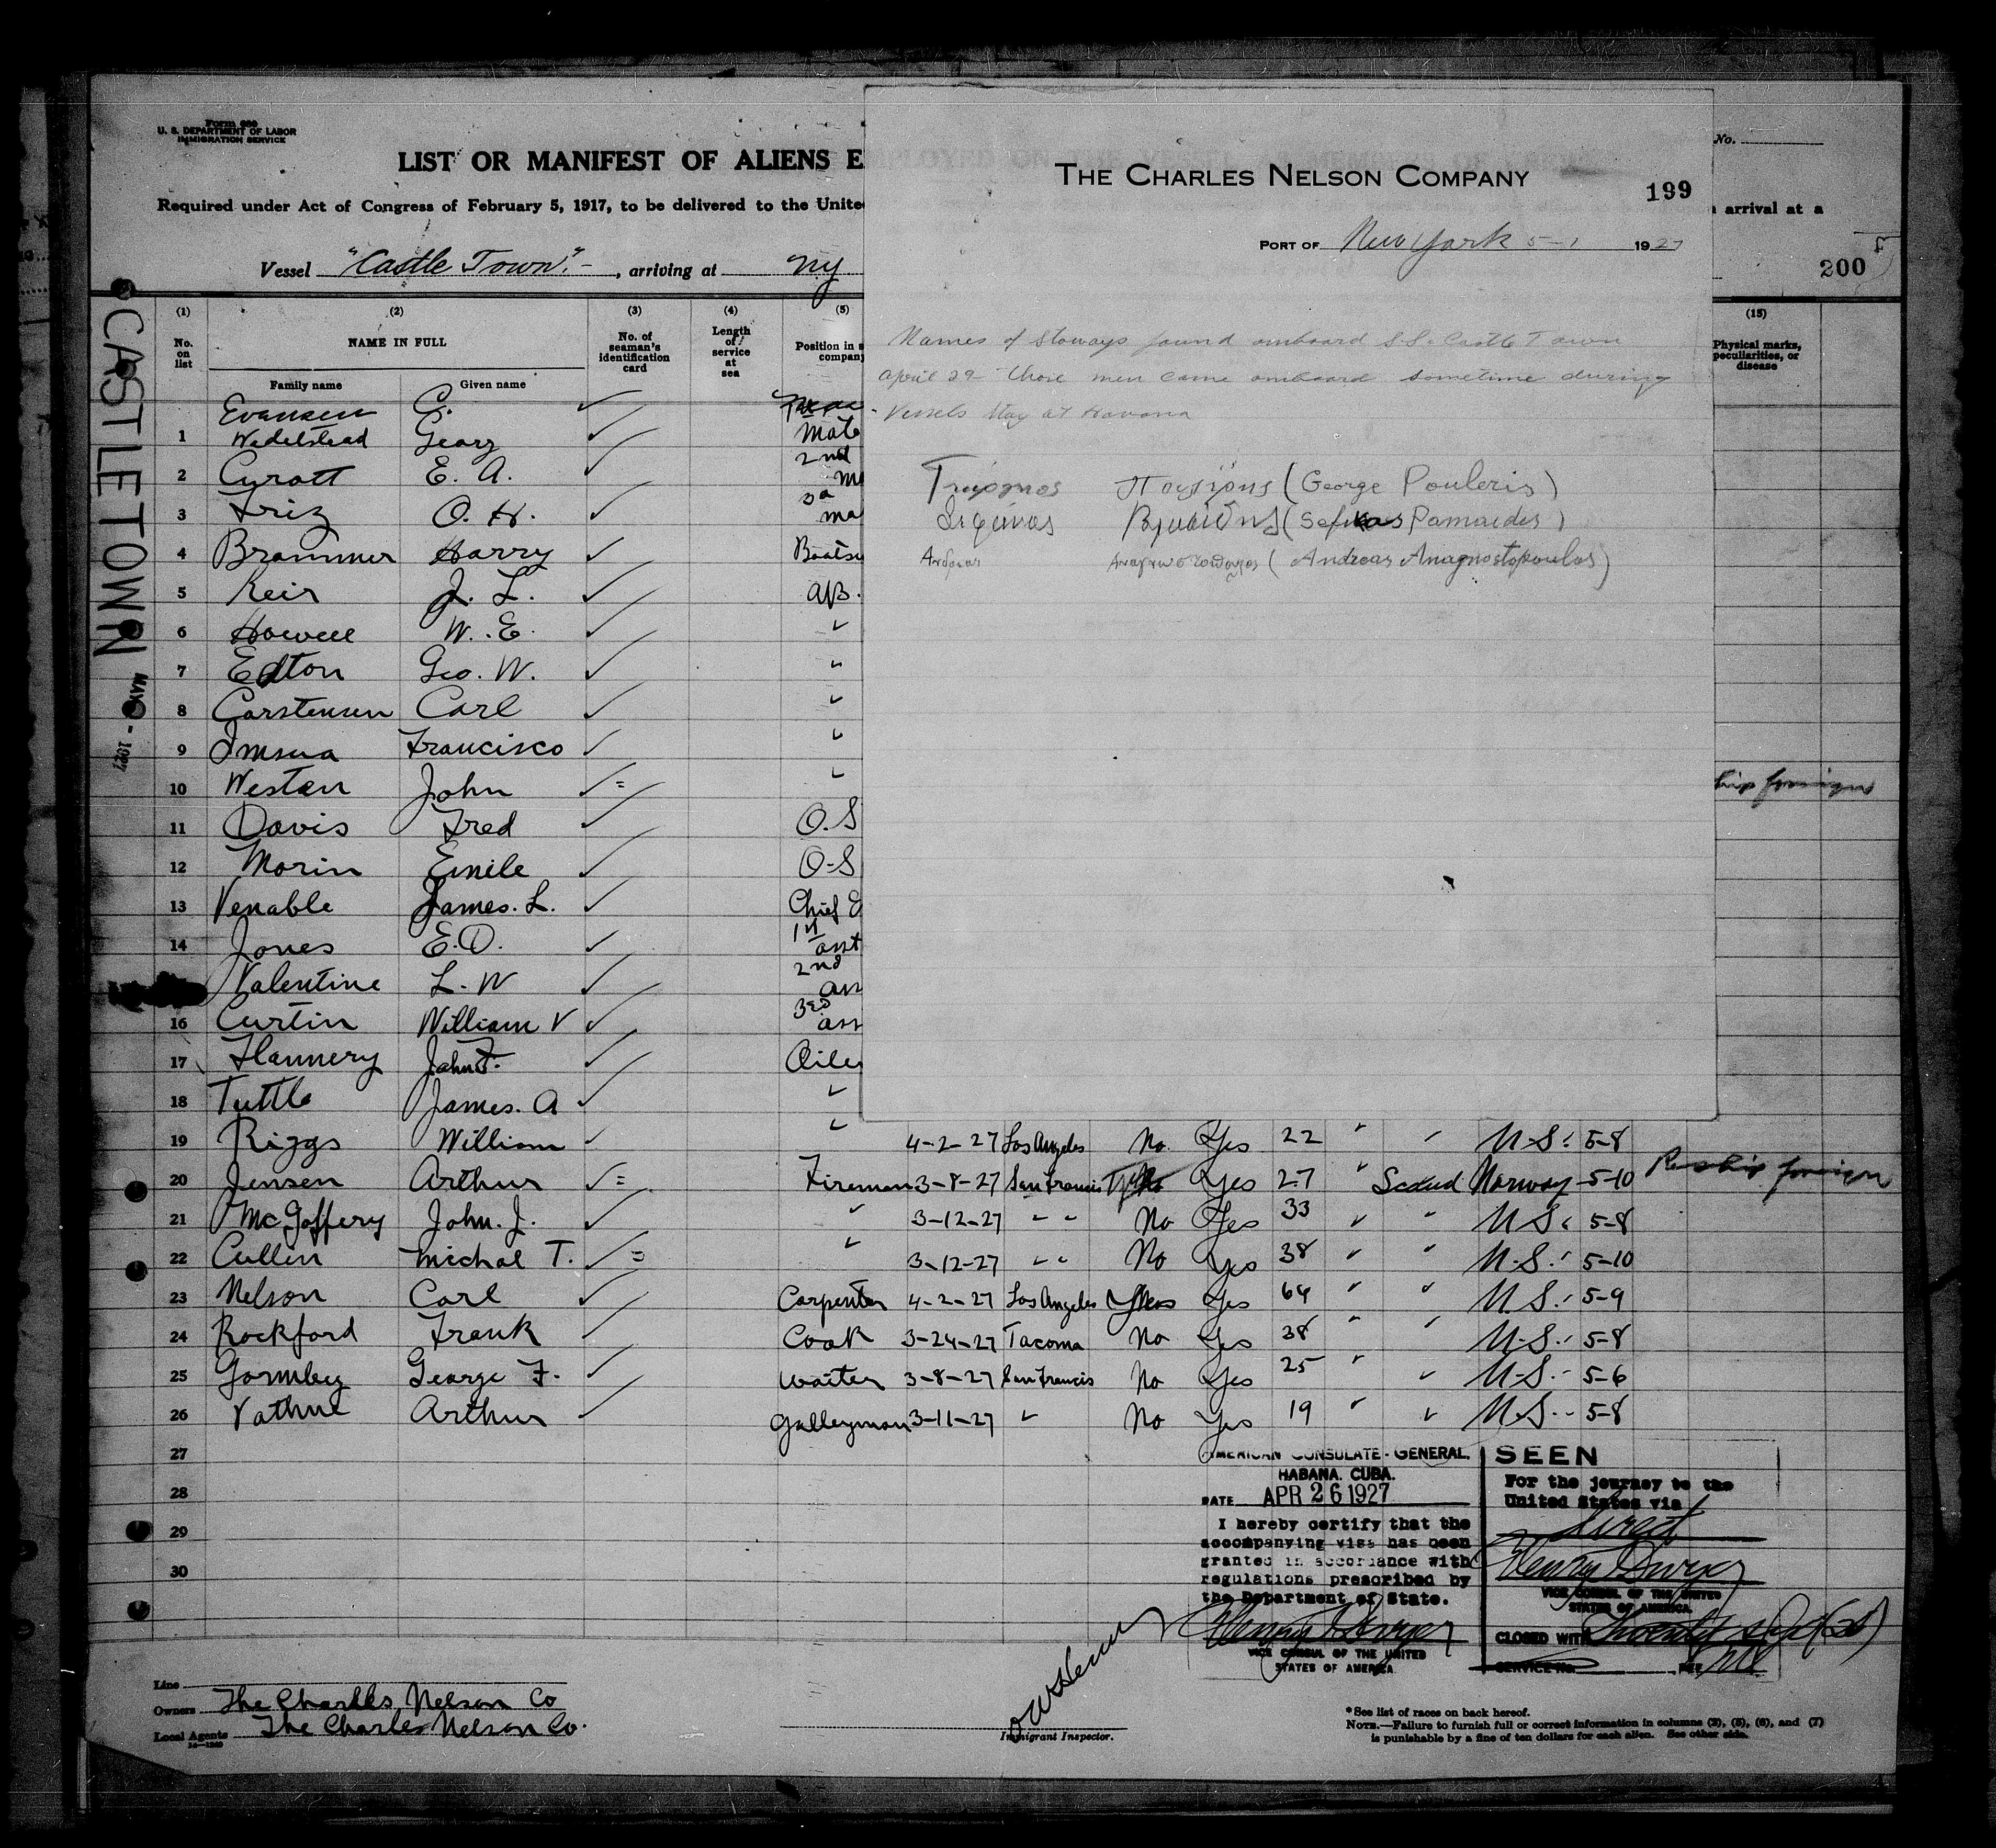 Form 689
U. S. DEPARTMENT OF LABOR
IMMIGRATION SERVICE
LIST OR MANIFEST OF ALIENS E
Required under Act of Congress of February 5, 1917, to be delivered to the Unite
Vessel "Castle Town".- , arriving at Ny
No.
arrival at a
200
THE CHARLES NELSON COMPANY
199
PORT OF New York 5-1 1927
Names of Stoways found onboard S.S. Castle Town
April 29 those men came onboard sometime during
Vessels stay at Havana
(George Pouleris)
(Sefikas Pamaides)
Ανδρεας Αναγνωστοπουλος (Andreas Anagnostopoulos)
CASTLETOWN MAY - 1927
(1) (2) (3) (4) (5) (15)
No. on list NAME IN FULL No. of seaman's identification card Length of service at sea Position in s company Physical marks, peculiarities, or disease
Family name Given name
Evansen C.
1 Wedelstead Georg Mate
2 Cyrott E. A. 2nd
3 Friz O. H. 3d ma
4 Brammer Harry Boatsw
5 Keir J. L. AB.
6 Howell W. E. "
7 Edton Geo. W. "
8 Carstensen Carl "
9 Francisco "
10 Westen John " hip foreign
11 Davis Fred O.S
12 Morin Emile O-S
13 Venable James. L. Chief E
14 Jones E.O. 1st asst
Valentine L. W 2nd ass
16 Curtin William V 3rd ass
17 Flannery John F. Oiler
18 Tuttle James. A "
19 Riggs William " 4-2-27 Los Angeles No. Yes 22 " " U.S. 5-8
20 Jensen Arthur = Fireman 3-8-27 San Francis Yes 27 " Scand Norway 5-10 Reship foreign
21 McGaffery John. J. " 3-12-27 " " No Yes 33 " " U.S. 5-8
22 Cullen Michal T. = " 3-12-27 " " No Yes 38 " " U.S. 5-10
23 Nelson Carl Carpenter 4-2-27 Los Angeles Yes Yes 64 " " U.S. 5-9
24 Rockford Frank Cook 3-24-27 Tacoma No Yes 38 " " U.S. 5-8
25 Gormley George F. Waiter 3-8-27 San Francis No Yes 25 " " U.S. 5-6
26 Vathne Arthur Galleyman 3-11-27 " No Yes 19 " " U.S. 5-8
27
28
29
30
AMERICAN CONSULATE-GENERAL.
HABANA. CUBA.
DATE APR 26 1927
I hereby certify that the
accompanying visa has been
granted in accordance with
regulations prescribed by
the Department of State.
VICE CONSUL OF THE UNITED
STATES OF AMERICA
SEEN
For the journey to the
United States via
direct
VICE CONSUL OF THE UNITED
STATES OF AMERICA.
CLOSED WITH
SERVICE NO. FEE
Line
Owners The Charles Nelson Co
Local Agents The Charles Nelson Co.
14-1240
Immigrant Inspector.
*See list of races on back hereof.
NOTE.—Failure to furnish full or correct information in columns (2), (5), (6), and (7)
is punishable by a fine of ten dollars for each alien. See other side.